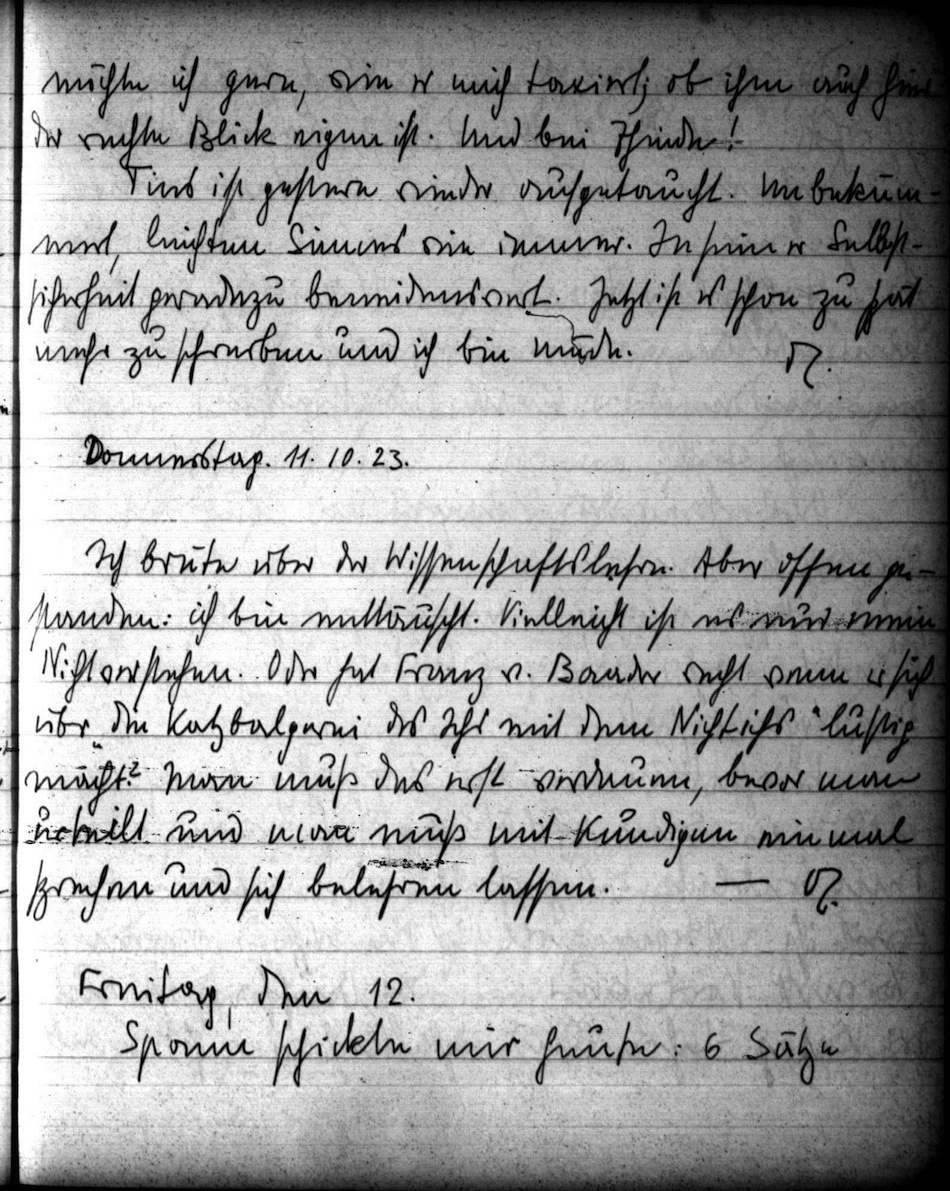 möchte ich gern, wie er mich taxiert; ob ihm auch hier
der rechte Blick eigen ist. Und bei Thinde!
Tius ist gestern wieder aufgetaucht. Unbeküm-
mert, leichten Sinnes wie immer. In seiner Selbst-
sicherheit geradezu beneidenswert. Jetzt ist es schon zu spät
mehr zu schreiben und ich bin müde.
Donnerstag. 11. 10. 23.
Ich brüte über der Wissenschaftslehre. Aber offen ge-
standen: ich bin enttäuscht. Vielleicht ist es nur mein
Nichtverstehen. Oder hat Franz v. Baader recht wenn er sich
über "die Katzbalgerei des Ichs mit dem Nichtichs" lustig
macht? Man muß das erst verdauen, bevor man
urteilt und man muß mit Kundigen einmal
sprechen und sich belehren lassen. —
Freitag, den 12.
Spann schickte mir heute: 6 Sätze